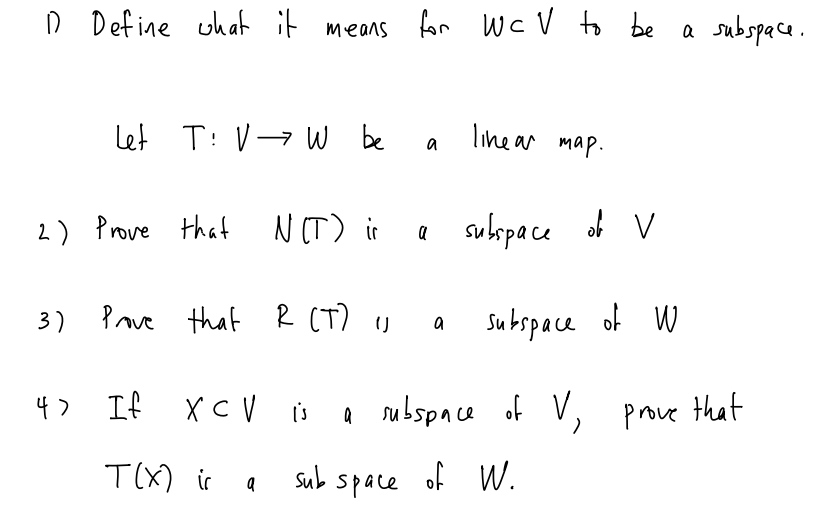 1) Define what it means for W ⊂ V to be a subspace.
Let T: V → W be a linear map.
2) Prove that N(T) is a subspace of V
3) Prove that R(T) is a subspace of W
4) If X ⊂ V is a subspace of V, prove that
T(X) is a subspace of W.